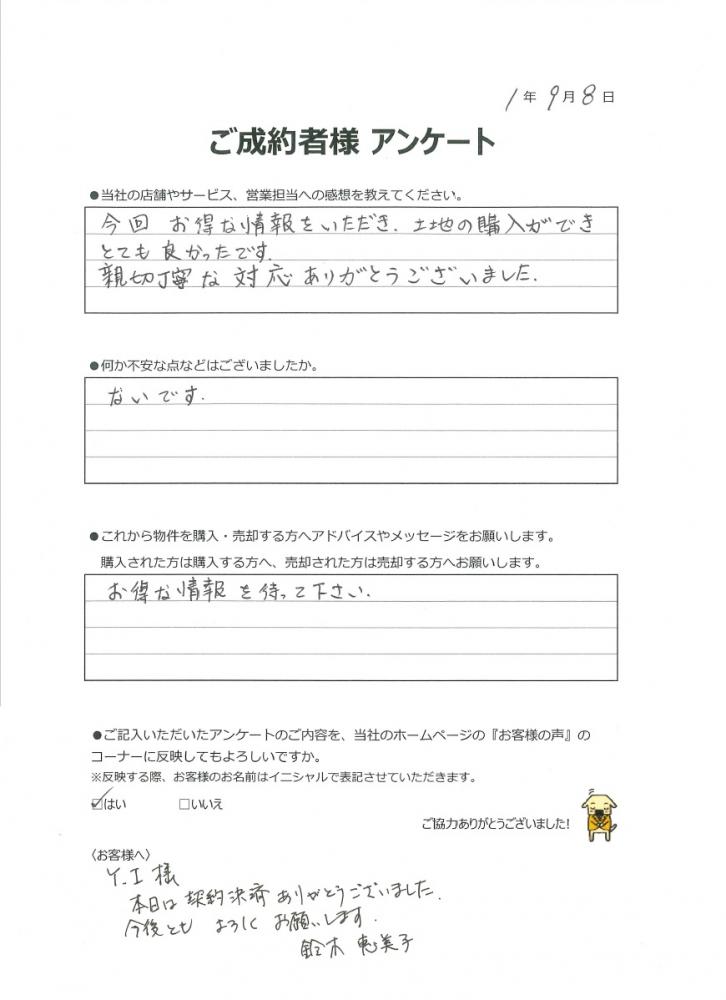 1年9月8日
ご成約者様 アンケート
●当社の店舗やサービス、営業担当への感想を教えてください。
今回 お得な情報をいただき、土地の購入ができ
とても良かったです。
親切丁寧な対応ありがとうございました。
●何か不安な点などはございましたか。
ないです。
●これから物件を購入・売却する方へアドバイスやメッセージをお願いします。
購入された方は購入する方へ、売却された方は売却する方へお願いします。
お得な情報を待って下さい。
●ご記入いただいたアンケートのご内容を、当社のホームページの『お客様の声』の
コーナーに反映してもよろしいですか。
※反映する際、お客様のお名前はイニシャルで表記させていただきます。
☑はい □いいえ
ご協力ありがとうございました!
〈お客様へ〉
Y.I様
本日は契約決済ありがとうございました。
今後とも よろしくお願いします。
鈴木 恵美子